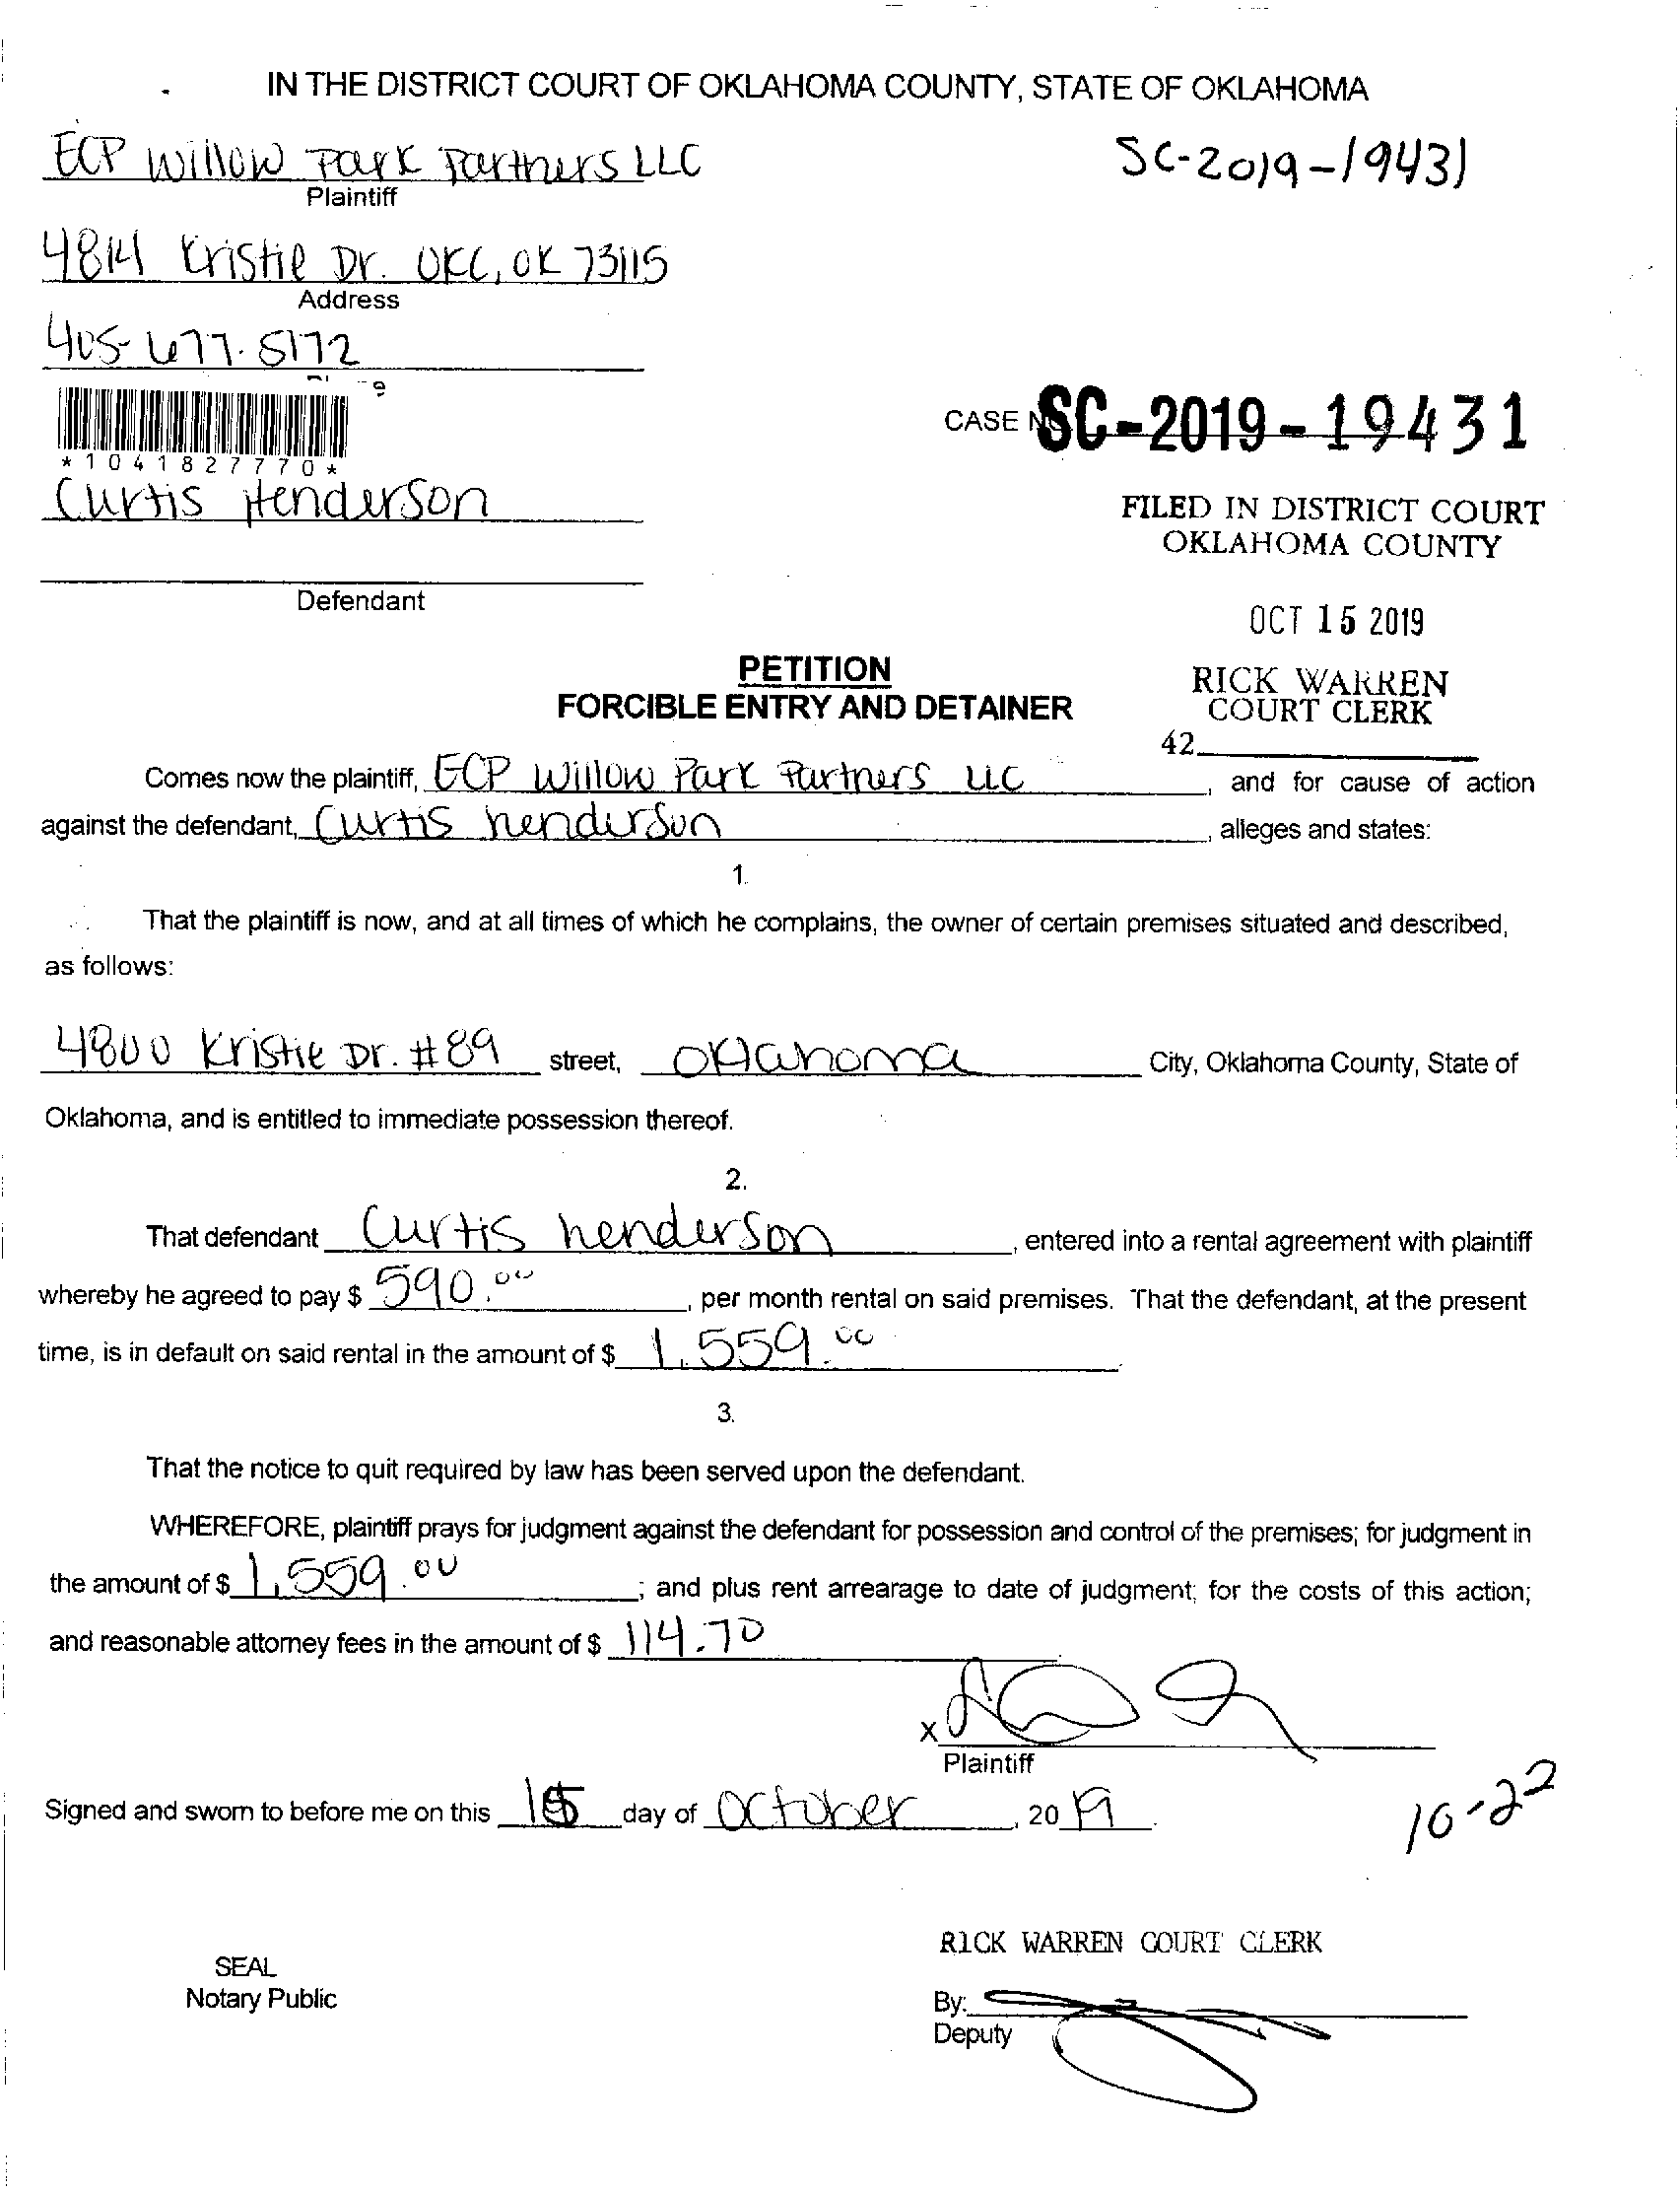 IN THE DISTRICT COURT OF OKLAHOMA COUNTY, STATE OF OKLAHOMA
ECP Willow Park Partners LLC
SC-2019-19431
Plaintiff
4814 Kristie Dr. OKC, OK 73115
Address
405-677-5172
*1041827770*
CASE NO. SC-2019-19431
Curtis Henderson
FILED IN DISTRICT COURT
OKLAHOMA COUNTY
Defendant
OCT 15 2019
PETITION
FORCIBLE ENTRY AND DETAINER
RICK WARREN
COURT CLERK
42
Comes now the plaintiff, ECP Willow Park Partners LLC, and for cause of action
against the defendant, Curtis henderson, alleges and states:
1.
That the plaintiff is now, and at all times of which he complains, the owner of certain premises situated and described,
as follows:
4800 Kristie Dr. #89 street, Oklahoma City, Oklahoma County, State of
Oklahoma, and is entitled to immediate possession thereof.
2.
That defendant Curtis henderson, entered into a rental agreement with plaintiff
whereby he agreed to pay $ 590.00, per month rental on said premises. That the defendant, at the present
time, is in default on said rental in the amount of $ 1,559.00.
3.
That the notice to quit required by law has been served upon the defendant.
WHEREFORE, plaintiff prays for judgment against the defendant for possession and control of the premises; for judgment in
the amount of $ 1,559.00; and plus rent arrearage to date of judgment; for the costs of this action;
and reasonable attorney fees in the amount of $ 114.70.
X
Plaintiff
Signed and sworn to before me on this 15 day of October, 20 19.
10-22
RICK WARREN COURT CLERK
SEAL
Notary Public
By:
Deputy